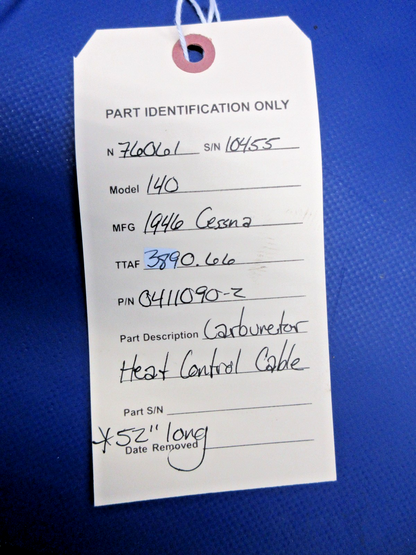 PART IDENTIFICATION ONLY
N 76061 S/N 10455
Model 140
MFG 1946 Cessna
TTAF 3890.66
P/N 0411090-2
Part Description Carburetor
Heat Control Cable
Part S/N
*52" long
Date Removed